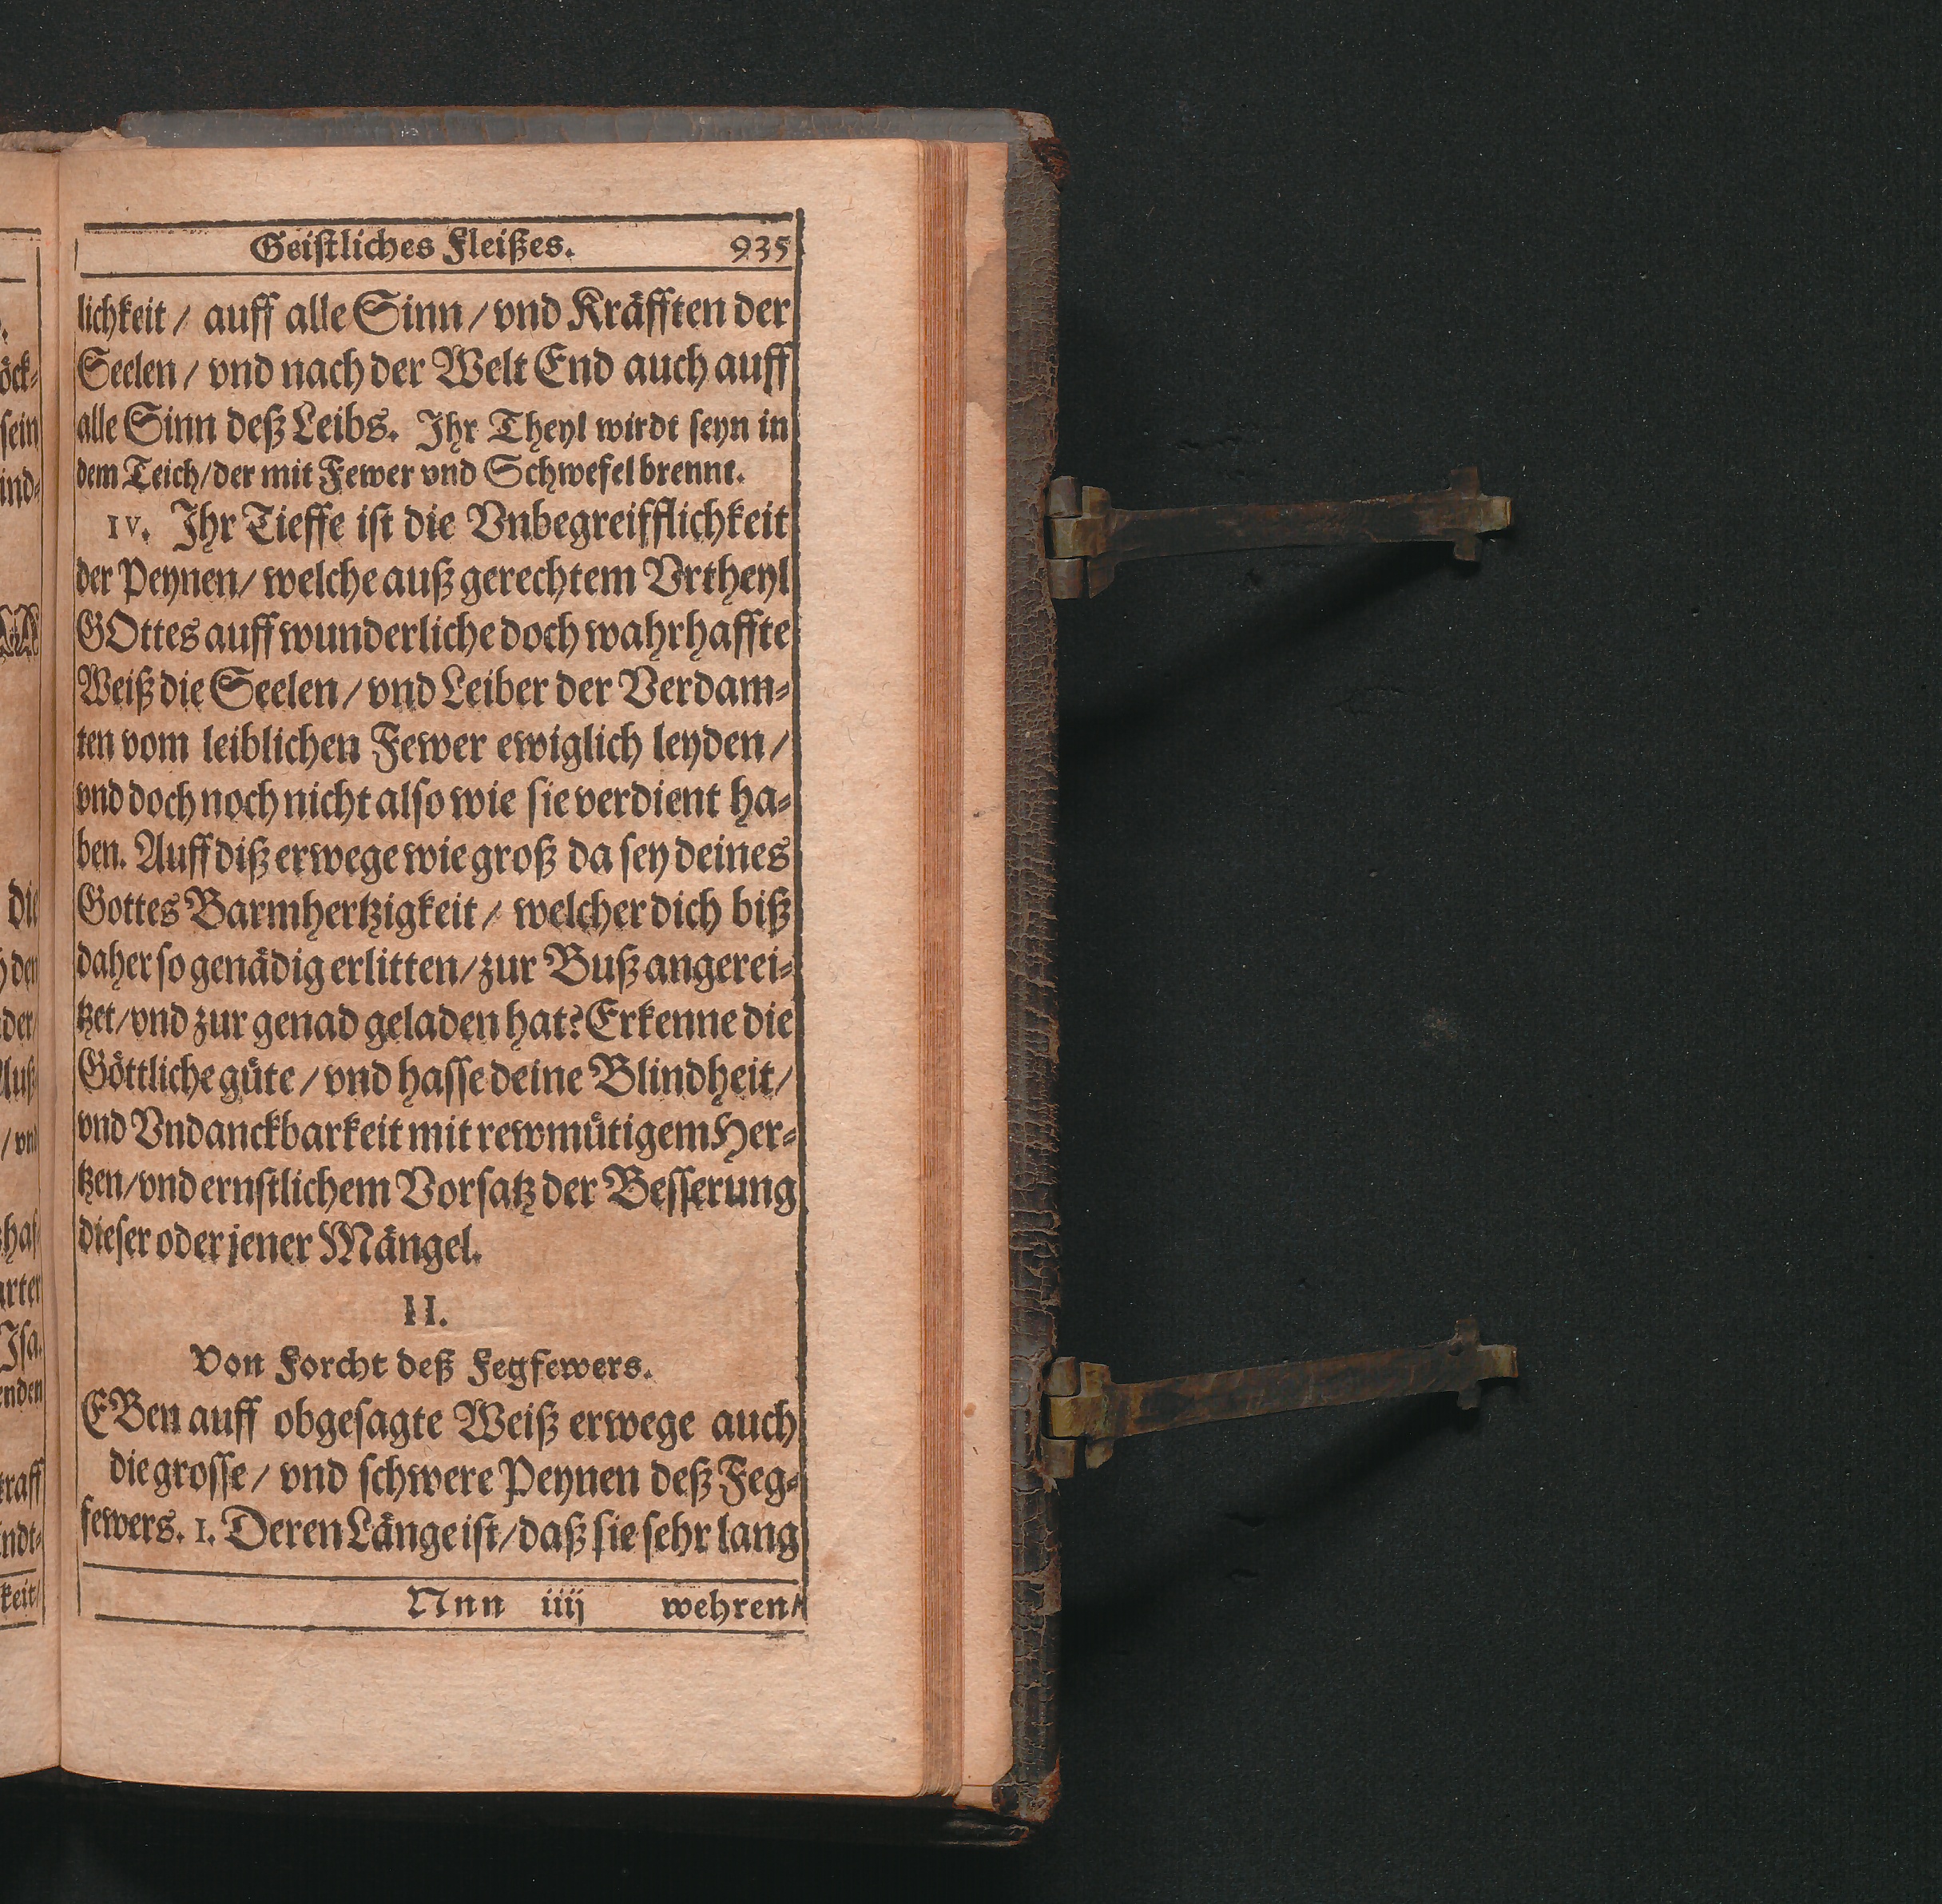 Geistliches Fleißes. 935
lichkeit / auff alle Sinn / vnd Kräfften der
Seelen / vnd nach der Welt End auch auff
alle Sinn deß Leibs. Ihr Theyl wirdt seyn in
dem Teich / der mit Fewer vnd Schwefel brennt.
IV. Ihr Tieffe ist die Vnbegreifflichkeit
der Peynen / welche auß gerechtem Vrtheyl
GOttes auff wunderliche doch wahrhaffte
Weiß die Seelen / vnd Leiber der Verdam-
ten vom leiblichen Fewer ewiglich leyden /
vnd doch noch nicht also wie sie verdient ha-
ben. Auff diß erwege wie groß da sey deines
Gottes Barmhertzigkeit / welcher dich biß
daher so genädig erlitten / zur Buß angerei-
tzet / vnd zur genad geladen hat? Erkenne die
Göttliche güte / vnd hasse deine Blindheit /
vnd Vndanckbarkeit mit rewmütigem Her-
tzen / vnd ernstlichem Vorsatz der Besserung
dieser oder jener Mängel.
II.
Von Forcht deß Fegfewers.
EBen auff obgesagte Weiß erwege auch
die grosse / vnd schwere Peynen deß Feg-
fewers. I. Deren Länge ist / daß sie sehr lang
Nnn iiij wehren /